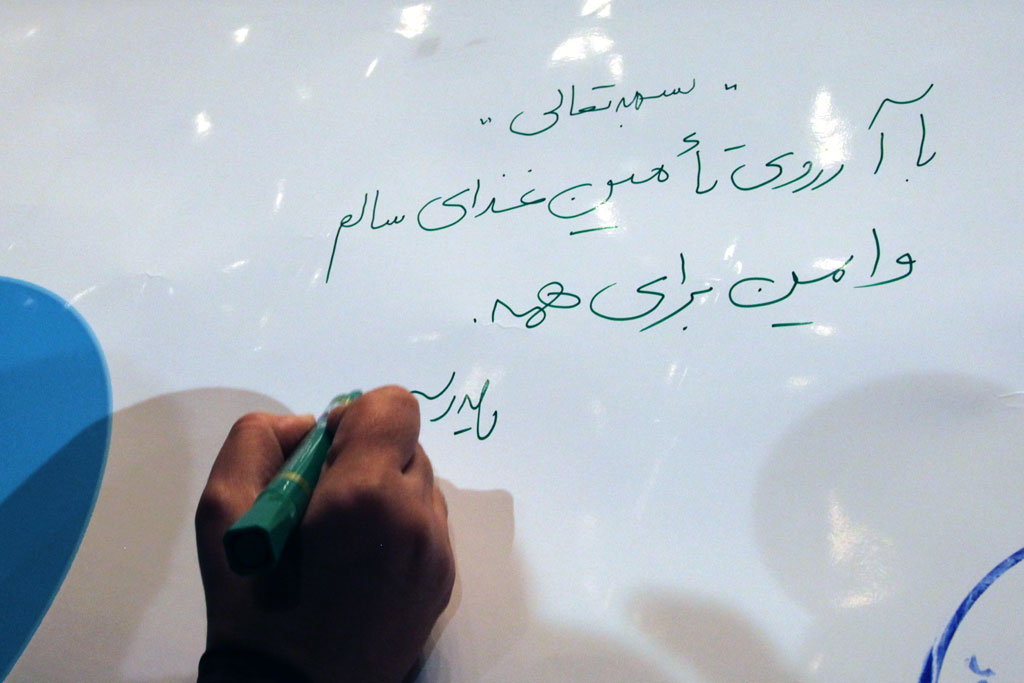 "بسمه تعالی"
با آرزوی تأمین غذای سالم
و امن برای همه.